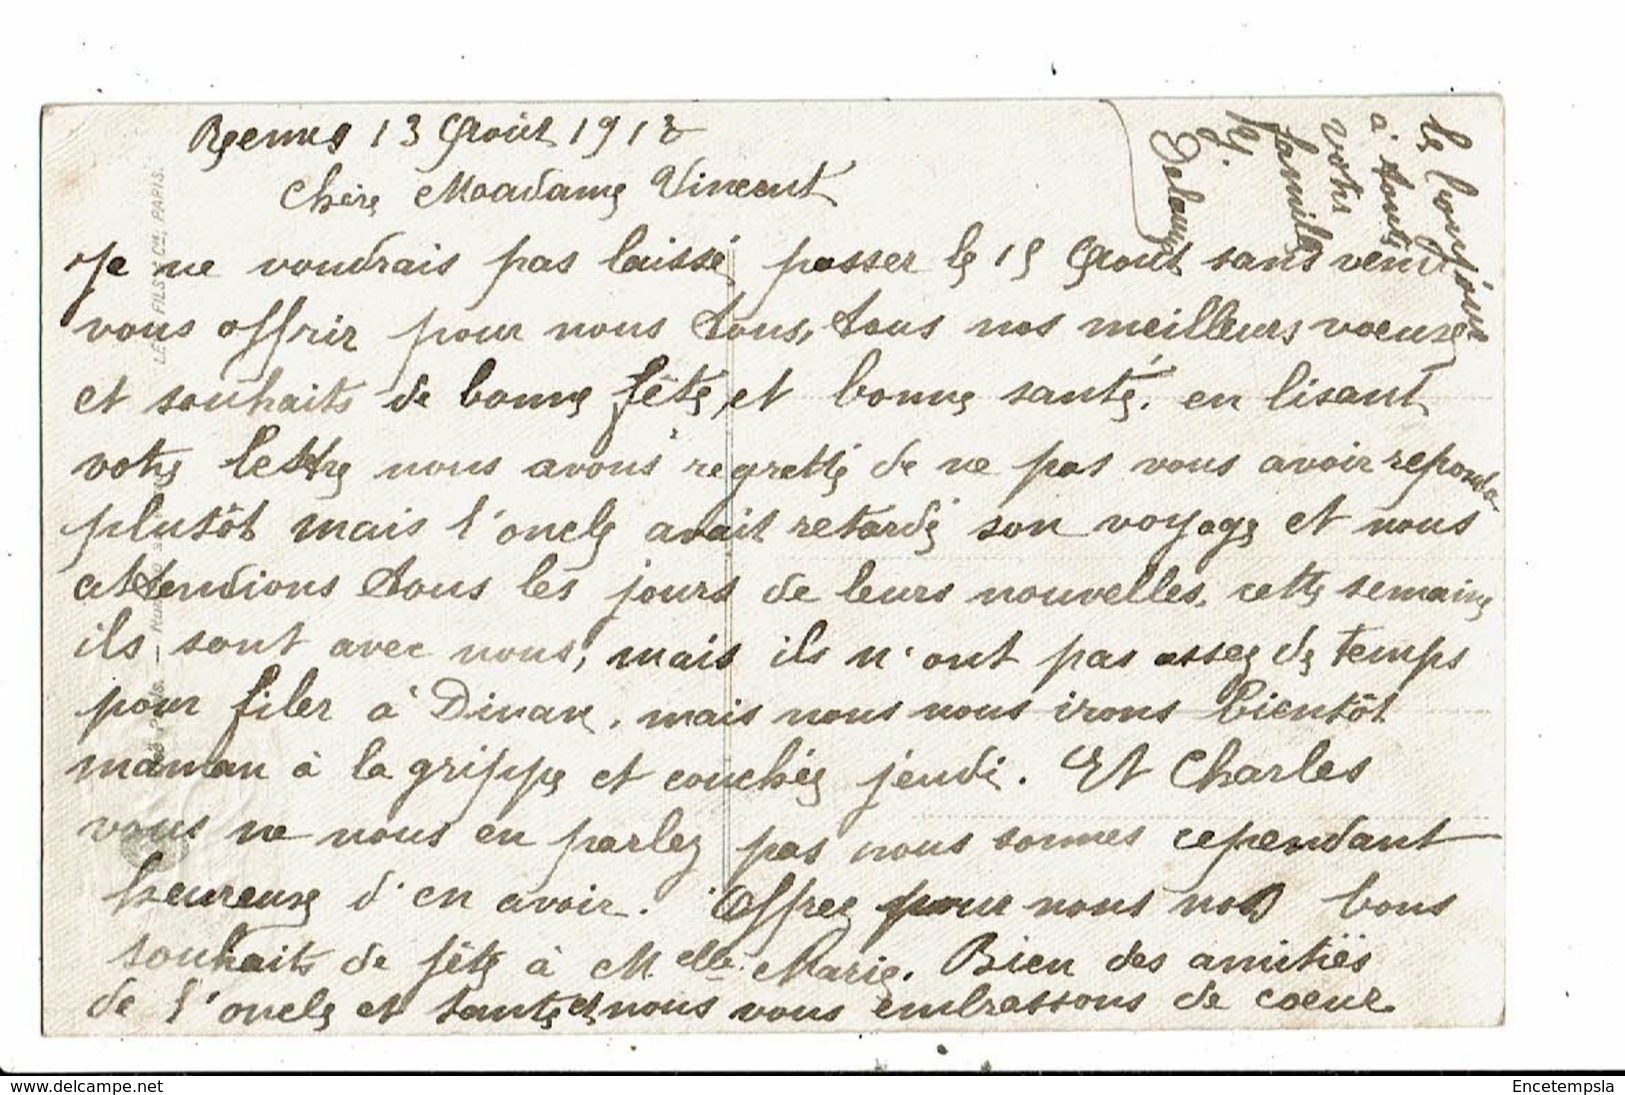 Rennes 13 Août 1912
Chère Maadame Vincent
Je ne voudrais pas laissé passer le 15 Août sans venir
vous offrir pour nous tous, tous nos meilleurs voeuxe
et souhaits de bonne fête, et bonne santé. en lisant
votre lettre nous avons regretté de ne pas vous avoir repondu
plutôt mais l'oncle avait retardé son voyage et nous
attendions tous les jours de leurs nouvelles. cette semaine
ils sont avec nous, mais ils n'ont pas assez de temps
pour filer à Dinan, mais nous nous irons bientôt
maman à la grippe et couchée jeudi. Et Charles
vous ne nous en parlez pas nous sommes cependant
heureuse d'en avoir. Offrez pour nous nos bons
souhaits de fête à Melle Marie. Bien des amitiés
de l'oncle et tante et nous vous embrassons de coeur
le bonjour
à toute
votre
famille
Delaunay
LE FILS & Cie, PARIS.
Encetempsla